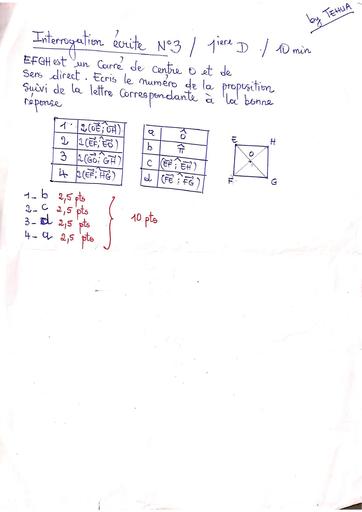 by TEHUA
Interrogation écrite N°3 / 1iere D. / 10 min
EFGH est un carré de centre O et de
sens direct. Ecris le numéro de la proposition
suivi de la lettre correspondante à la bonne
réponse
1 2(OE; OH)
2 2(EF; EG)
3 2(GO; GH)
4 2(EF; HG)
a O
b π
c (EF; EH)
d (FE; FG)
E H
O
F G
1- b 2,5 pts
2- c 2,5 pts
3- d 2,5 pts
4- a 2,5 pts
10 pts